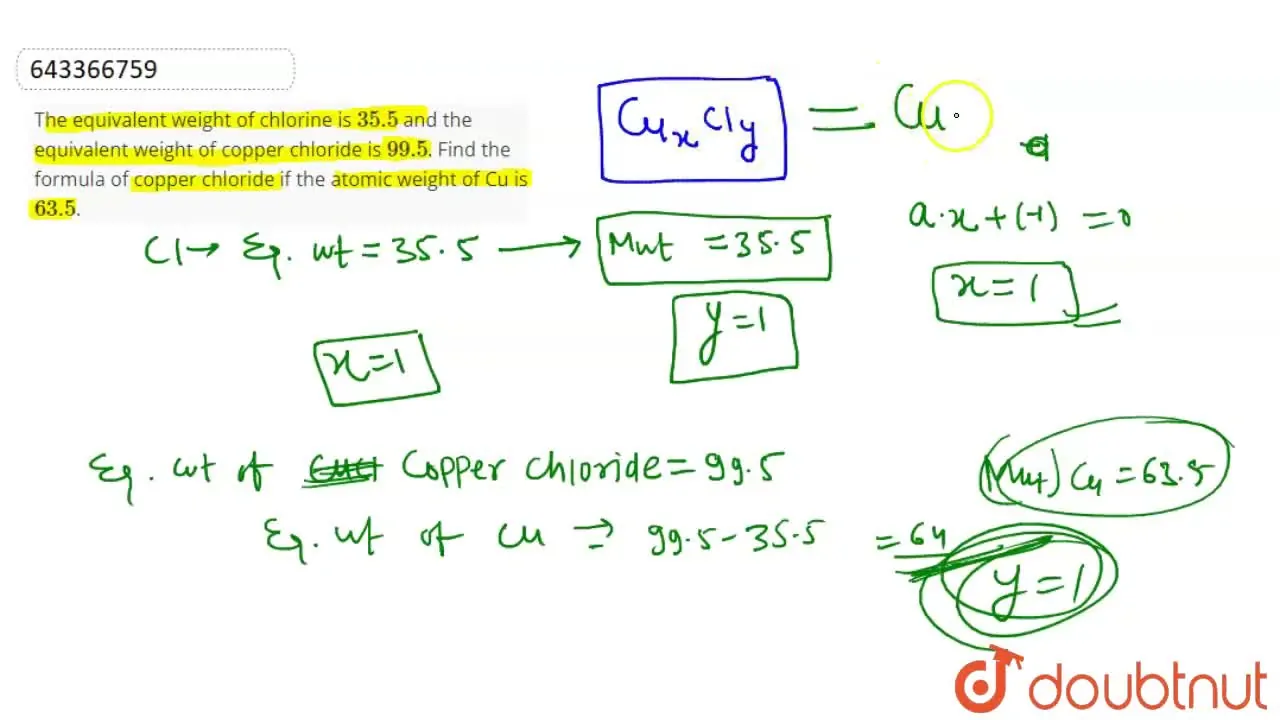 643366759
The equivalent weight of chlorine is 35.5 and the
equivalent weight of copper chloride is 99.5. Find the
formula of copper chloride if the atomic weight of Cu is
63.5.
CuxCly = Cu
a.x+(-1) = 0
Cl→ Eq. wt = 35.5 → Mwt = 35.5
x=1
y=1
x=1
Eq. wt of Copper chloride = 99.5
Mwt) Cu = 63.5
Eq. wt of Cu → 99.5-35.5 = 64
y=1
doubtnut